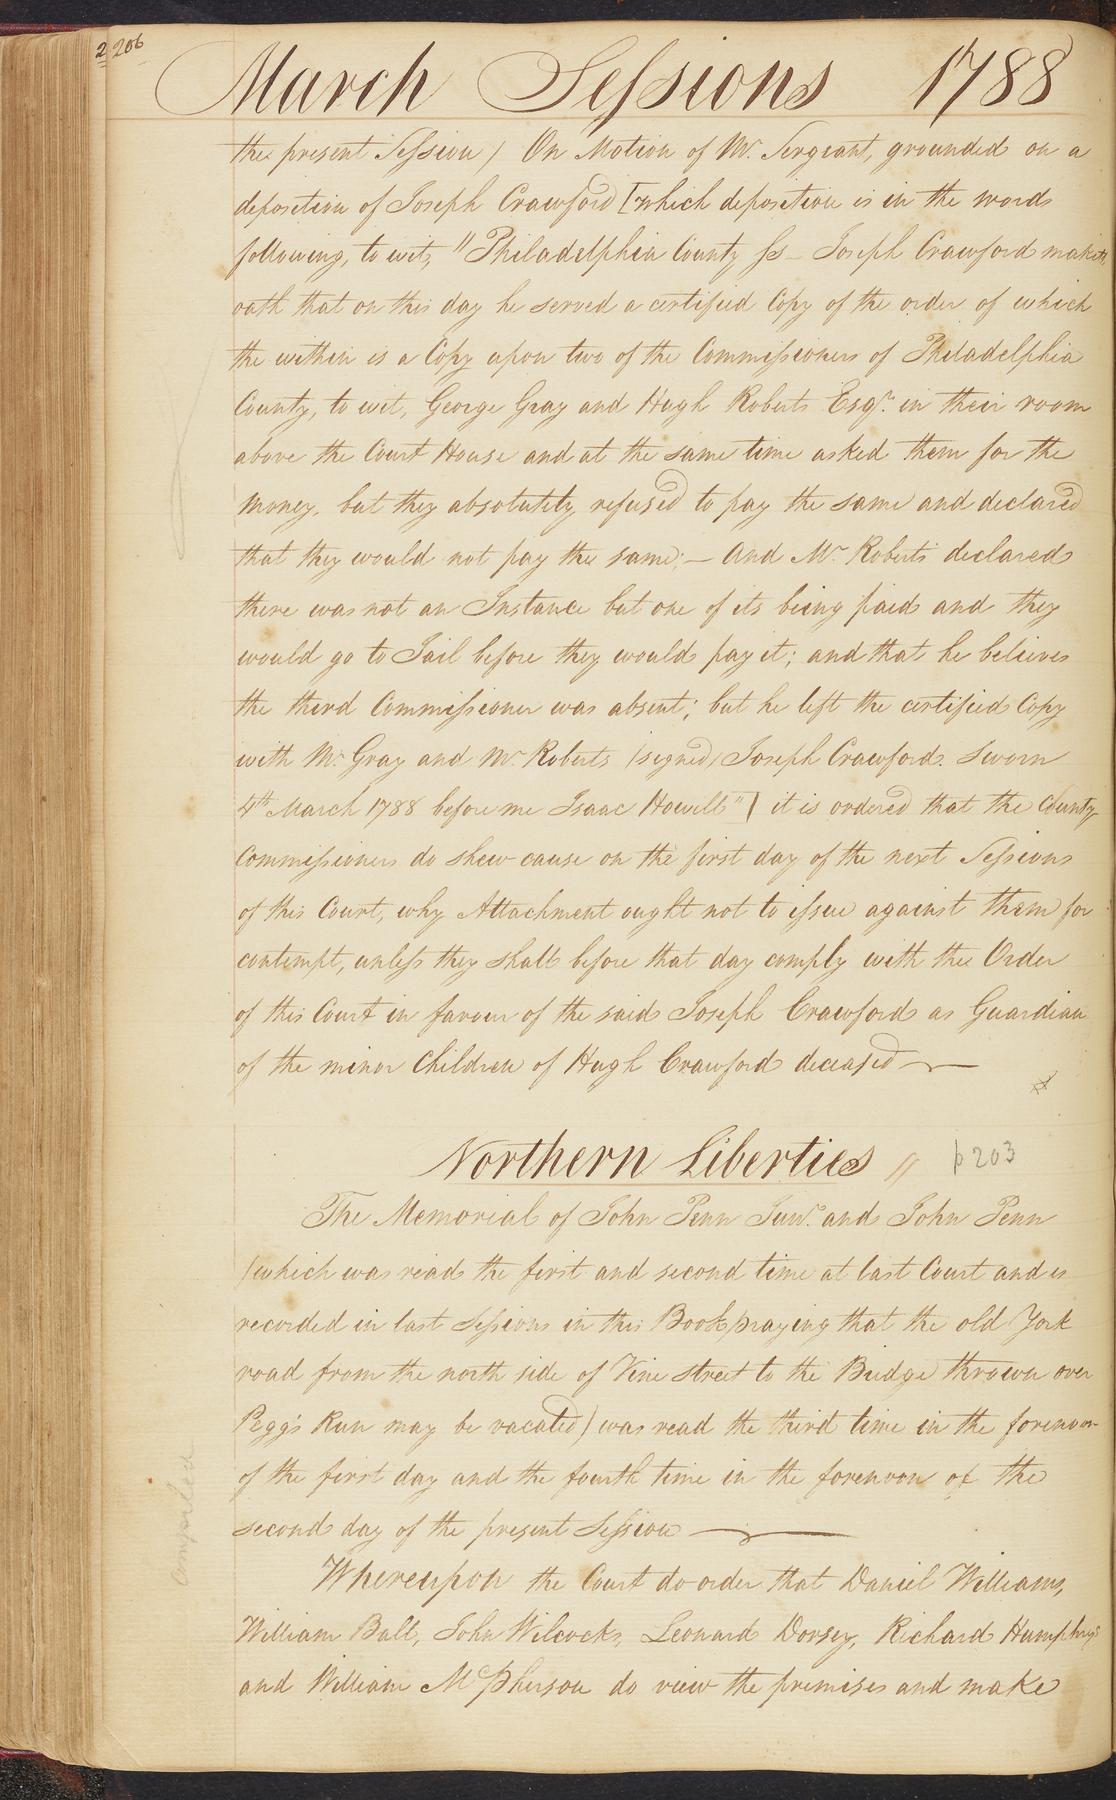 2 206
March Sessions 1788
the present Session) On Motion of Mr. Sergeant, grounded on a
deposition of Joseph Crawford [which deposition is in the words
following, to wit, "Philadelphia County ss– Joseph Crawford maketh
oath that on this day he served a certified Copy of the order of which
the within is a Copy upon two of the Commissioners of Philadelphia
County, to wit, George Gray and Hugh Roberts Esqrs. in their room
above the Court House and at the same time asked them for the
money, but they absolutely refused to pay the same and declared
that they would not pay the same;– And Mr. Roberts declared
there was not an Instance but one of its being paid and they
would go to Jail before they would pay it; and that he believes
the third Commissioner was absent; but he left the certified Copy
with Mr. Gray and Mr. Roberts (signed) Joseph Crawford. Sworn
4th March 1788 before me Isaac Howell"] it is ordered that the County
Commissioners do shew cause on the first day of the next Sessions
of this Court, why Attachment ought not to issue against them for
contempt, unless they shall before that day comply with the Order
of this Court in favour of the said Joseph Crawford as Guardian
of the minor Children of Hugh Crawford deceased
Northern Liberties p 203
The Memorial of John Penn Junr. and John Penn
(which was read the first and second time at last Court and is
recorded in last Sessions in this Book praying that the old York
road from the north side of Vine street to the Bridge thrown over
Pegg's Run may be vacated) was read the third time in the forenoon
of the first day and the fourth time in the forenoon of the
second day of the present Session
Whereupon the Court do order that Daniel Williams,
William Ball, John Wilcocks, Leonard Dorsey, Richard Humphreys
and William McPherson do view the premises and make
compiled